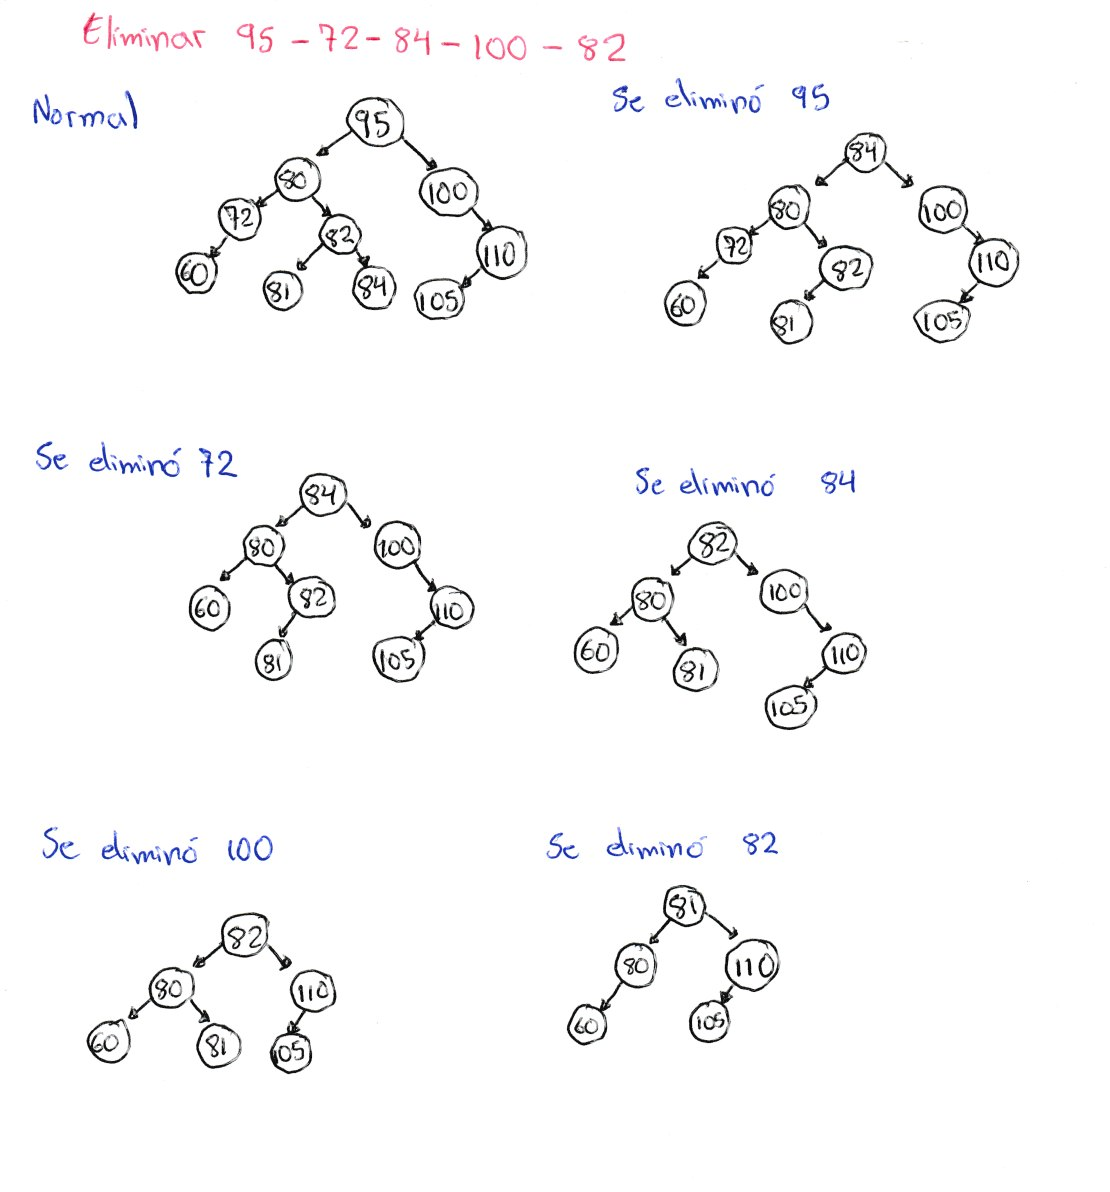 Eliminar 95 - 72 - 84 - 100 - 82
Normal
95
80 100
72 82 110
60 81 84 105
Se eliminó 95
84
80 100
72 82 110
60 81 105
Se eliminó 72
84
80 100
60 82 110
81 105
Se eliminó 84
82
80 100
60 81 110
105
Se eliminó 100
82
80 110
60 81 105
Se eliminó 82
81
80 110
60 105